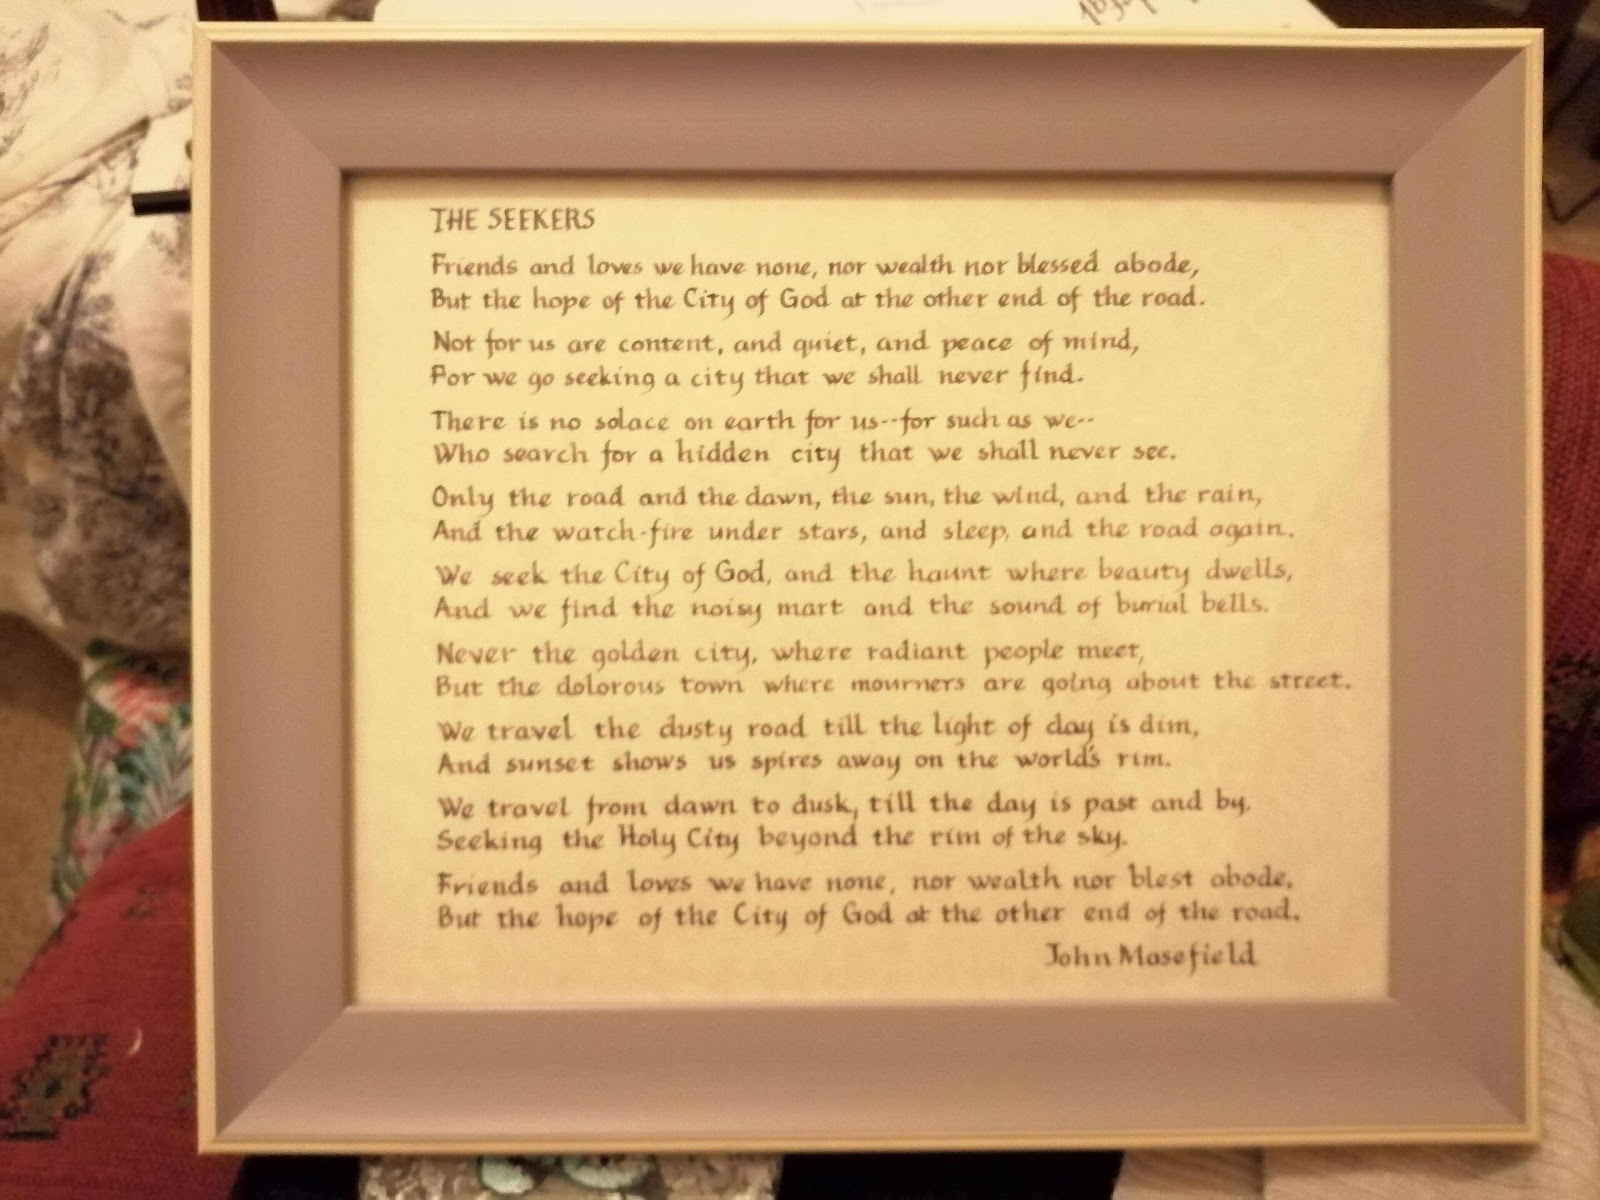 THE SEEKERS
Friends and loves we have none, nor wealth nor blessed abode,
But the hope of the City of God at the other end of the road.
Not for us are content, and quiet, and peace of mind,
For we go seeking a city that we shall never find.
There is no solace on earth for us--for such as we--
Who search for a hidden city that we shall never see.
Only the road and the dawn, the sun, the wind, and the rain,
And the watch-fire under stars, and sleep, and the road again.
We seek the City of God, and the haunt where beauty dwells,
And we find the noisy mart and the sound of burial bells.
Never the golden city, where radiant people meet,
But the dolorous town where mourners are going about the street.
We travel the dusty road till the light of day is dim,
And sunset shows us spires away on the world's rim.
We travel from dawn to dusk, till the day is past and by,
Seeking the Holy City beyond the rim of the sky.
Friends and loves we have none, nor wealth nor blest abode,
But the hope of the City of God at the other end of the road.
John Masefield